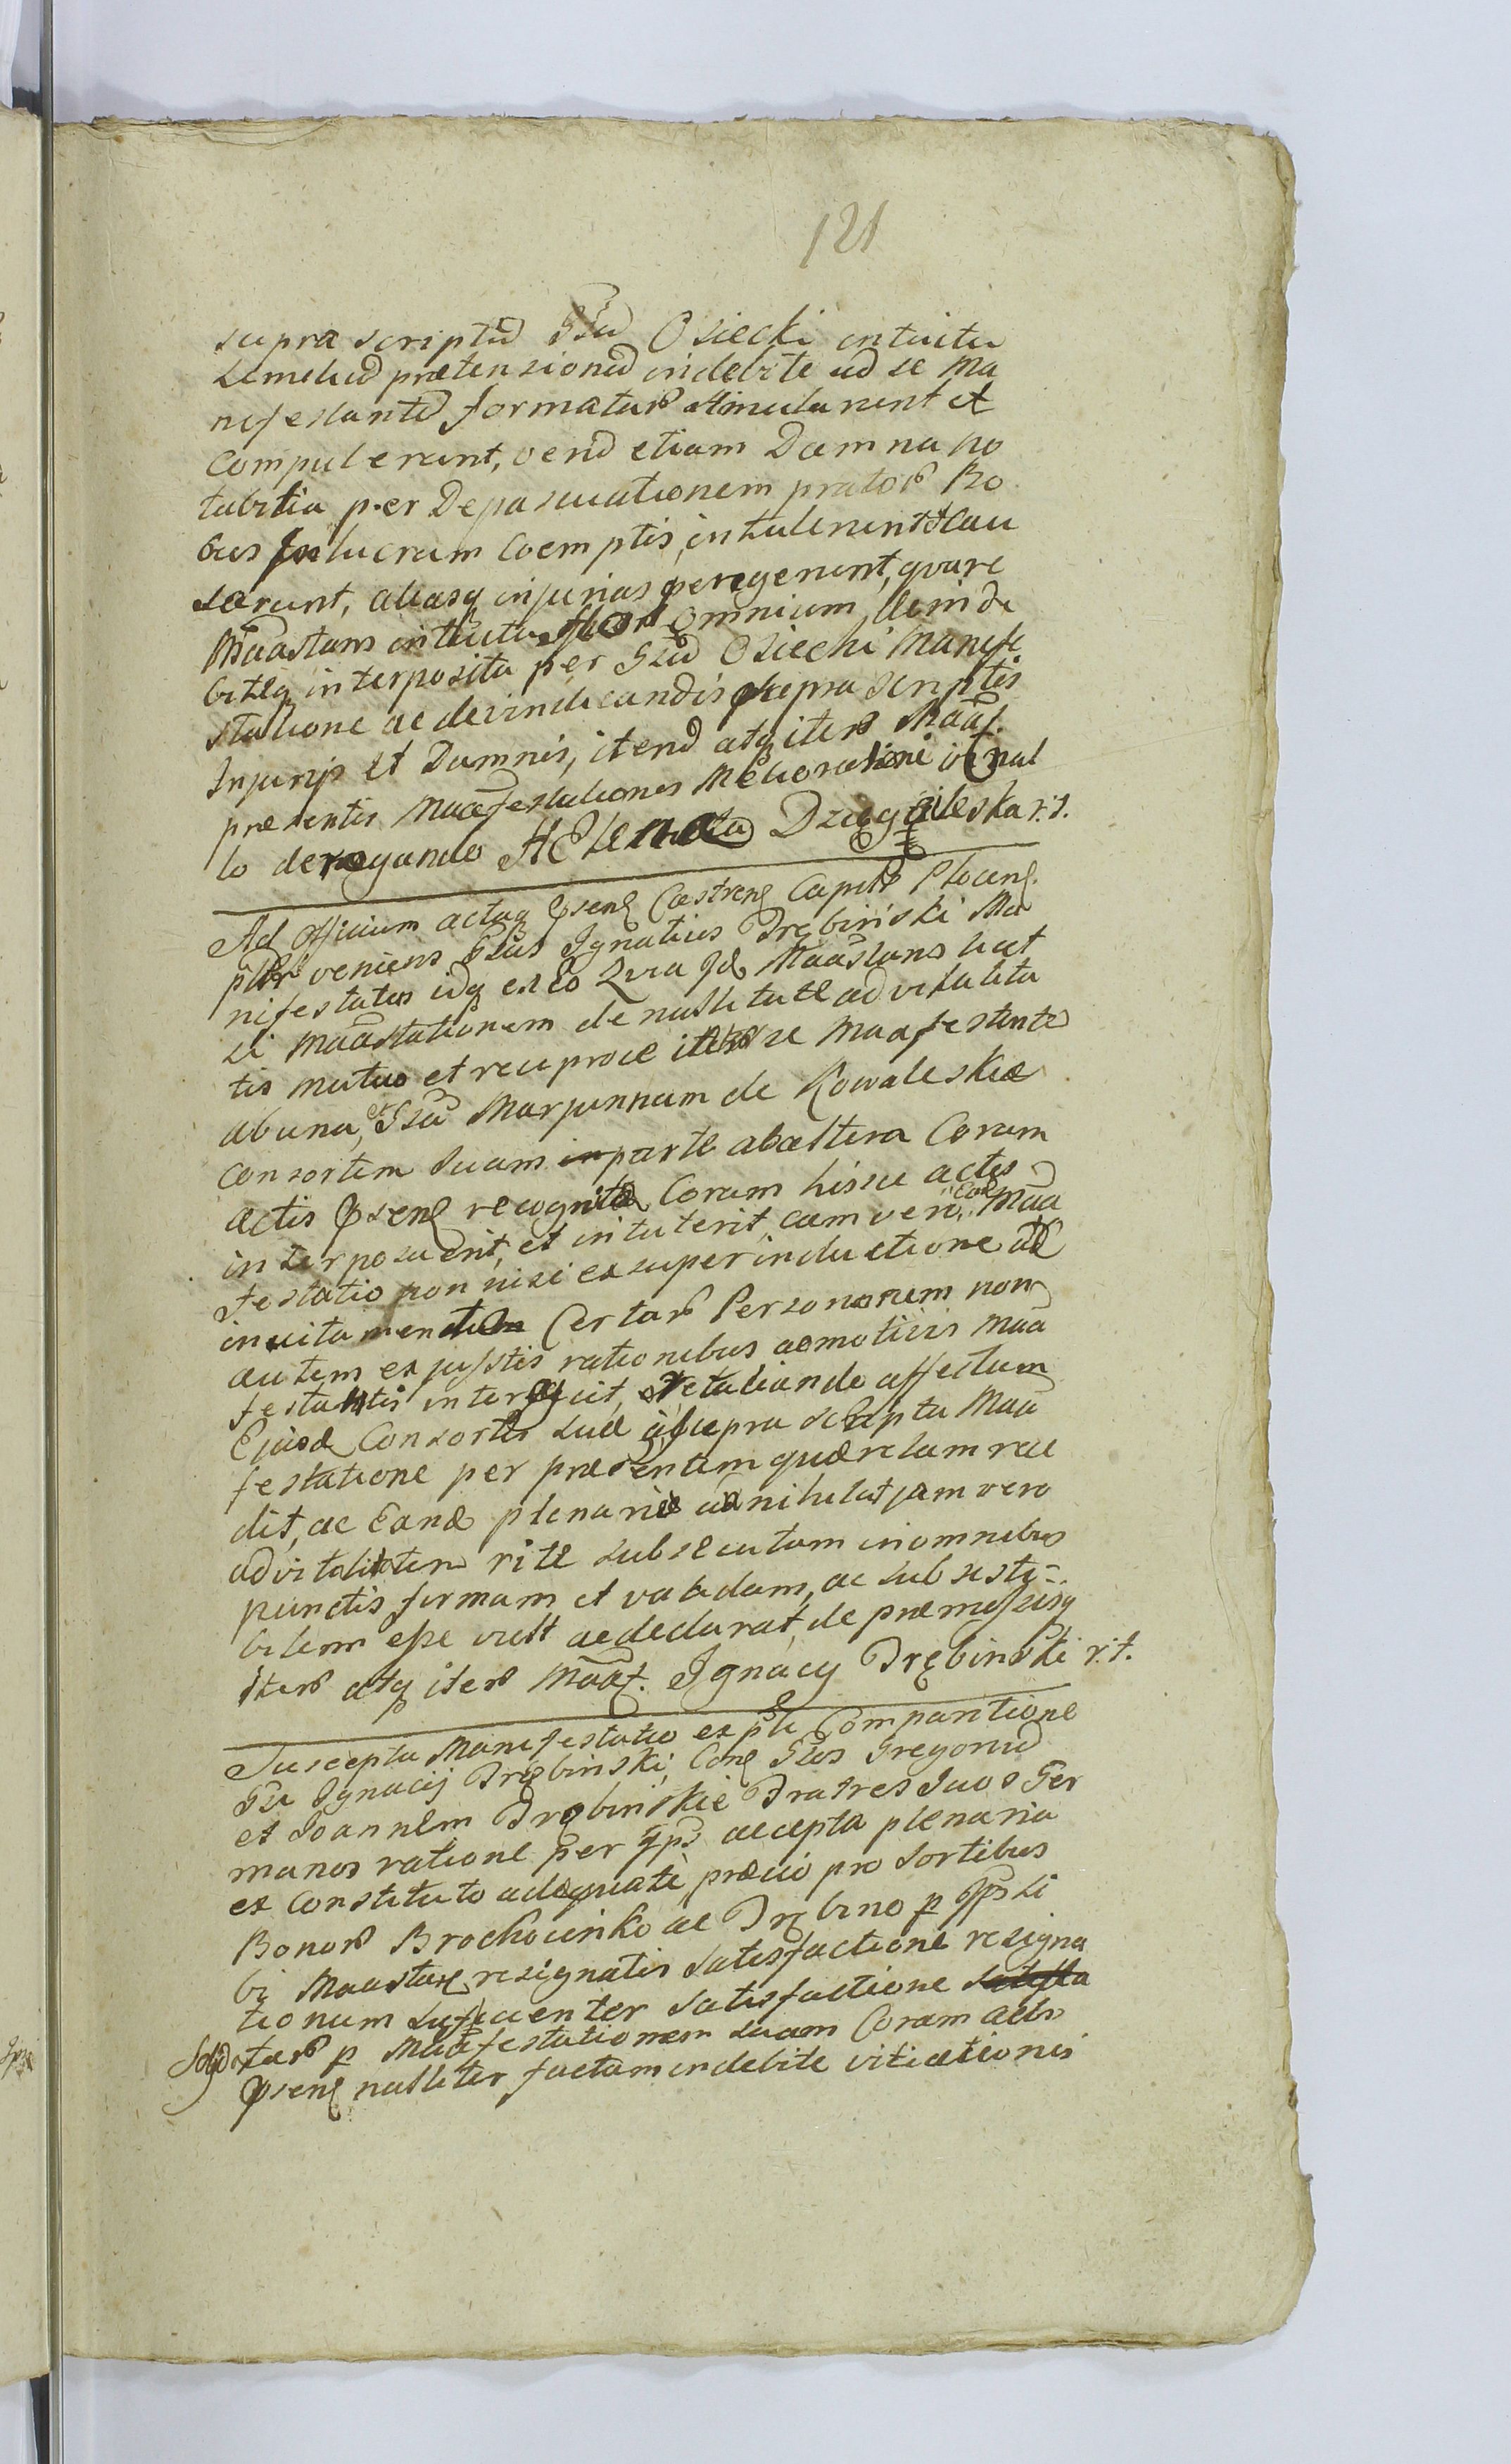 121
supra scriptũ Gsũ Osiecki intuitu
semelud prætensionũ indebite ad se Ma
nifestantũ formatar stimularunt et
compulerunt, verũ etiam Damna no
tabilia per Depascuationem prator Bo
bus In lucrum Coemptis, intulerunt et cau
sarunt, aliasq injurias peregerunt, quare
Maastans intuitu omnium Ilim de
biteq interposita per Gsũ Osiecki Manife
statione ac devindicandis supra scriptis
Injurijs et Damnis, iterũ atq iter Maaf.
præsentis Maafestationis Melioratione in nul
lo derogando HElena Dzięgieleska r.t.
Ad Officium actaq Psenę Castrenę Capitr Plocenę
pltr veniens Gsus Ignatius Drębiński Ma
nifestatus idq ex eo Quia Id Maastans licet
si Maastationem de nullitate advitalita
tis mutuo et reciproce inter se Maafestante
ab una, et Gsũ Maryannam de Kowaleskie
consortem suam parte ab altera Coram
actis Psenę recognitæ Coram hisce actis
interposuerit, et intulerit, cum vero Eadę Maa
festatio non nisi ex superinductione ac
incitamento Certar Personarum non
autem ex justis rationibus ac motivis Maa
festantis interfuit, retaliando affectum
Ejusdę Consortis suæ a supra scripta Maa
festatione per præsentem quærelam rece
dit, ac Eandę plenarie annihilat jam vero
advitalitatem rite subsecutam in omnibus
punctis firmam et validam, ac subsisti=
bilem esse vult ac declarat, de præmissisq
Iter atq iter Maaf. Ignacy Drębinski r.t.
Suscepta Manifestatio ex pli Comparitione
Gsi Ignacij Drębinski, Coną Gsos Gregoriũ
et Joannem Drębinskie Fratres suos Ger
manos ratione per Ips accepta plenaria
ex constituto adæquate præcio pro sortibus
Bonor Brochocinko ac Drębino p Ips si
bi Maastanę resignatis satisfactione resigna
tionum suficienter satisfactione
Solidatar p Maafestationem suam Coram actis
Psenę nulliter factam indebite vitiationis